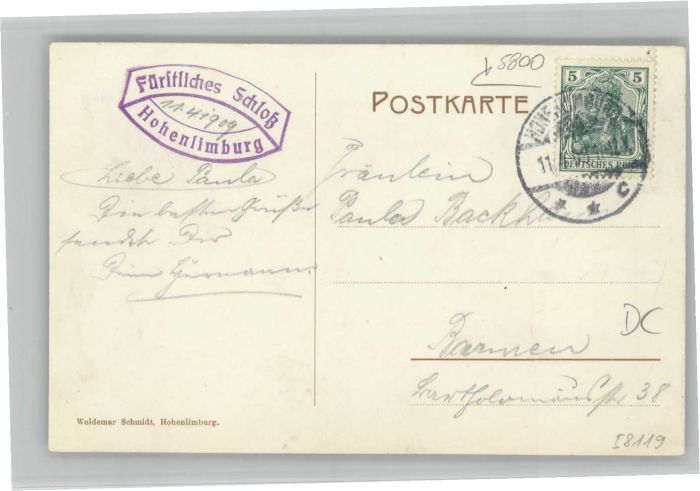 Fürstliches Schloß
11.4.1909
Hohenlimburg
5800
POSTKARTE
5
5
DEUTSCHES REICH
11
* * c
Liebe Paula
Die besten Grüße
sendet Dir
Dein Hermann
Fräulein
Paula
Barmen
Bartholomäusstr 38
DC
I8119
Woldemar Schmidt, Hohenlimburg.